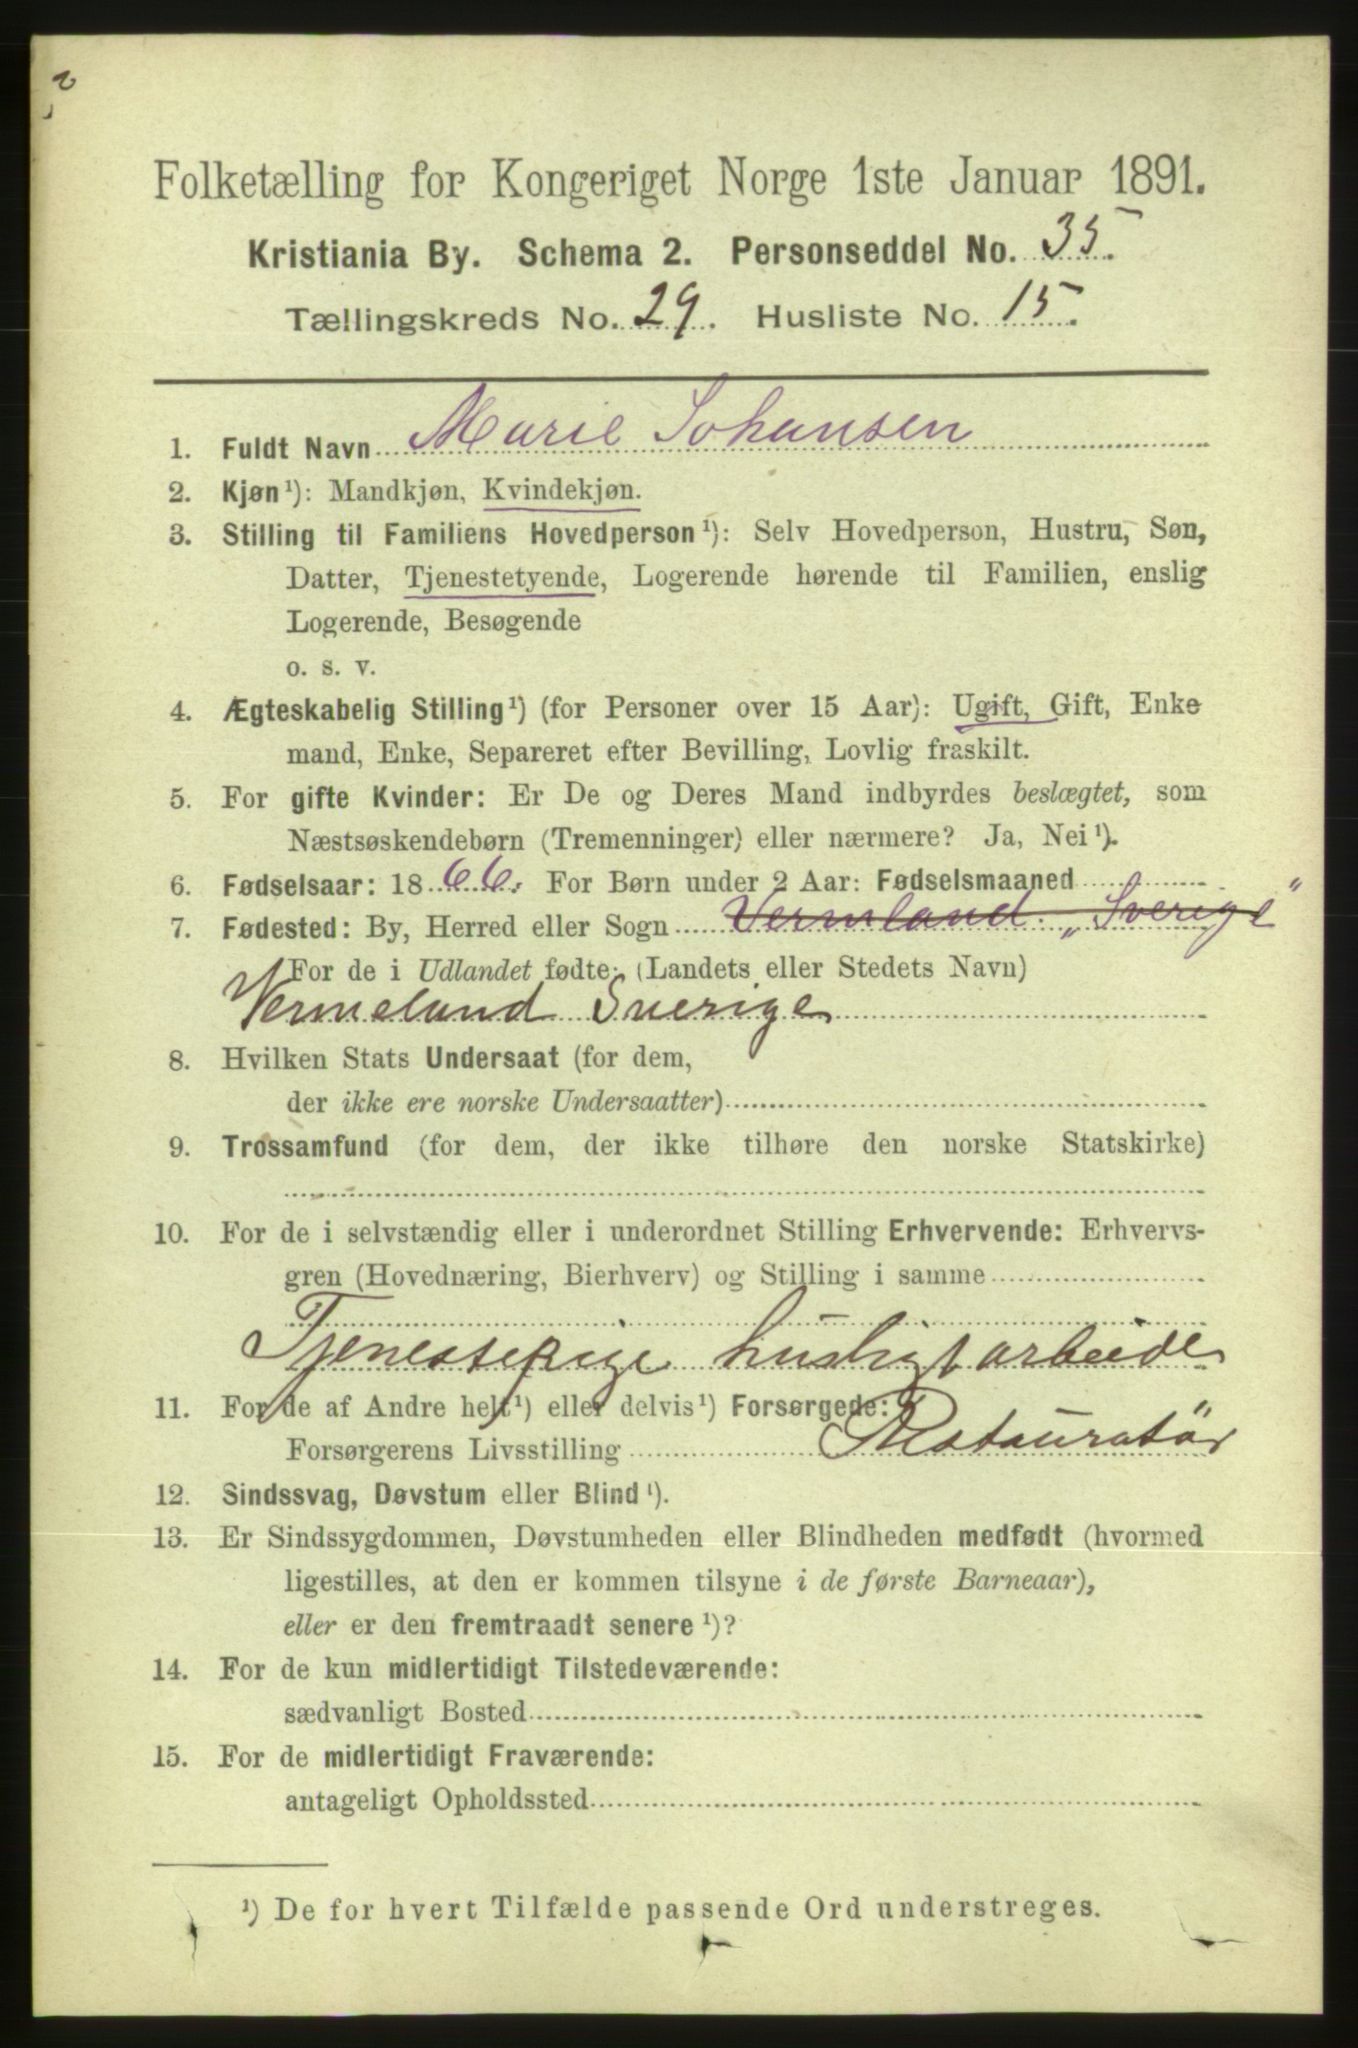 2
Folketælling for Kongeriget Norge 1ste Januar 1891.
Kristiania By. Schema 2. Personseddel No. 35.
Tællingskreds No. 29. Husliste No. 15.
1. Fuldt Navn Marie Johansen
2. Kjøn¹): Mandkjøn, Kvindekjøn.
3. Stilling til Familiens Hovedperson¹): Selv Hovedperson, Hustru, Søn,
Datter, Tjenestetyende, Logerende hørende til Familien, enslig
Logerende, Besøgende
o. s. v.
4. Ægteskabelig Stilling¹) (for Personer over 15 Aar): Ugift, Gift, Enke
mand, Enke, Separeret efter Bevilling, Lovlig fraskilt.
5. For gifte Kvinder: Er De og Deres Mand indbyrdes beslægtet, som
Næstsøskendebørn (Tremenninger) eller nærmere? Ja, Nei¹).
6. Fødselsaar: 1866. For Børn under 2 Aar: Fødselsmaaned
7. Fødested: By, Herred eller Sogn Vermland. „Sverige"
For de i Udlandet fødte: (Landets eller Stedets Navn)
Vermeland Sverige
8. Hvilken Stats Undersaat (for dem,
der ikke ere norske Undersaatter)
9. Trossamfund (for dem, der ikke tilhøre den norske Statskirke)
10. For de i selvstændig eller i underordnet Stilling Erhvervende: Erhvervs-
gren (Hovednæring, Bierhverv) og Stilling i samme
Tjenestepige husligt arbeide
11. For de af Andre helt¹) eller delvis¹) Forsørgede:
Forsørgerens Livsstilling Restauratör
12. Sindssvag, Døvstum eller Blind¹).
13. Er Sindssygdommen, Døvstumheden eller Blindheden medfødt (hvormed
ligestilles, at den er kommen tilsyne i de første Barneaar),
eller er den fremtraadt senere¹)?
14. For de kun midlertidigt Tilstedeværende:
sædvanligt Bosted
15. For de midlertidigt Fraværende:
antageligt Opholdssted
¹) De for hvert Tilfælde passende Ord understreges.